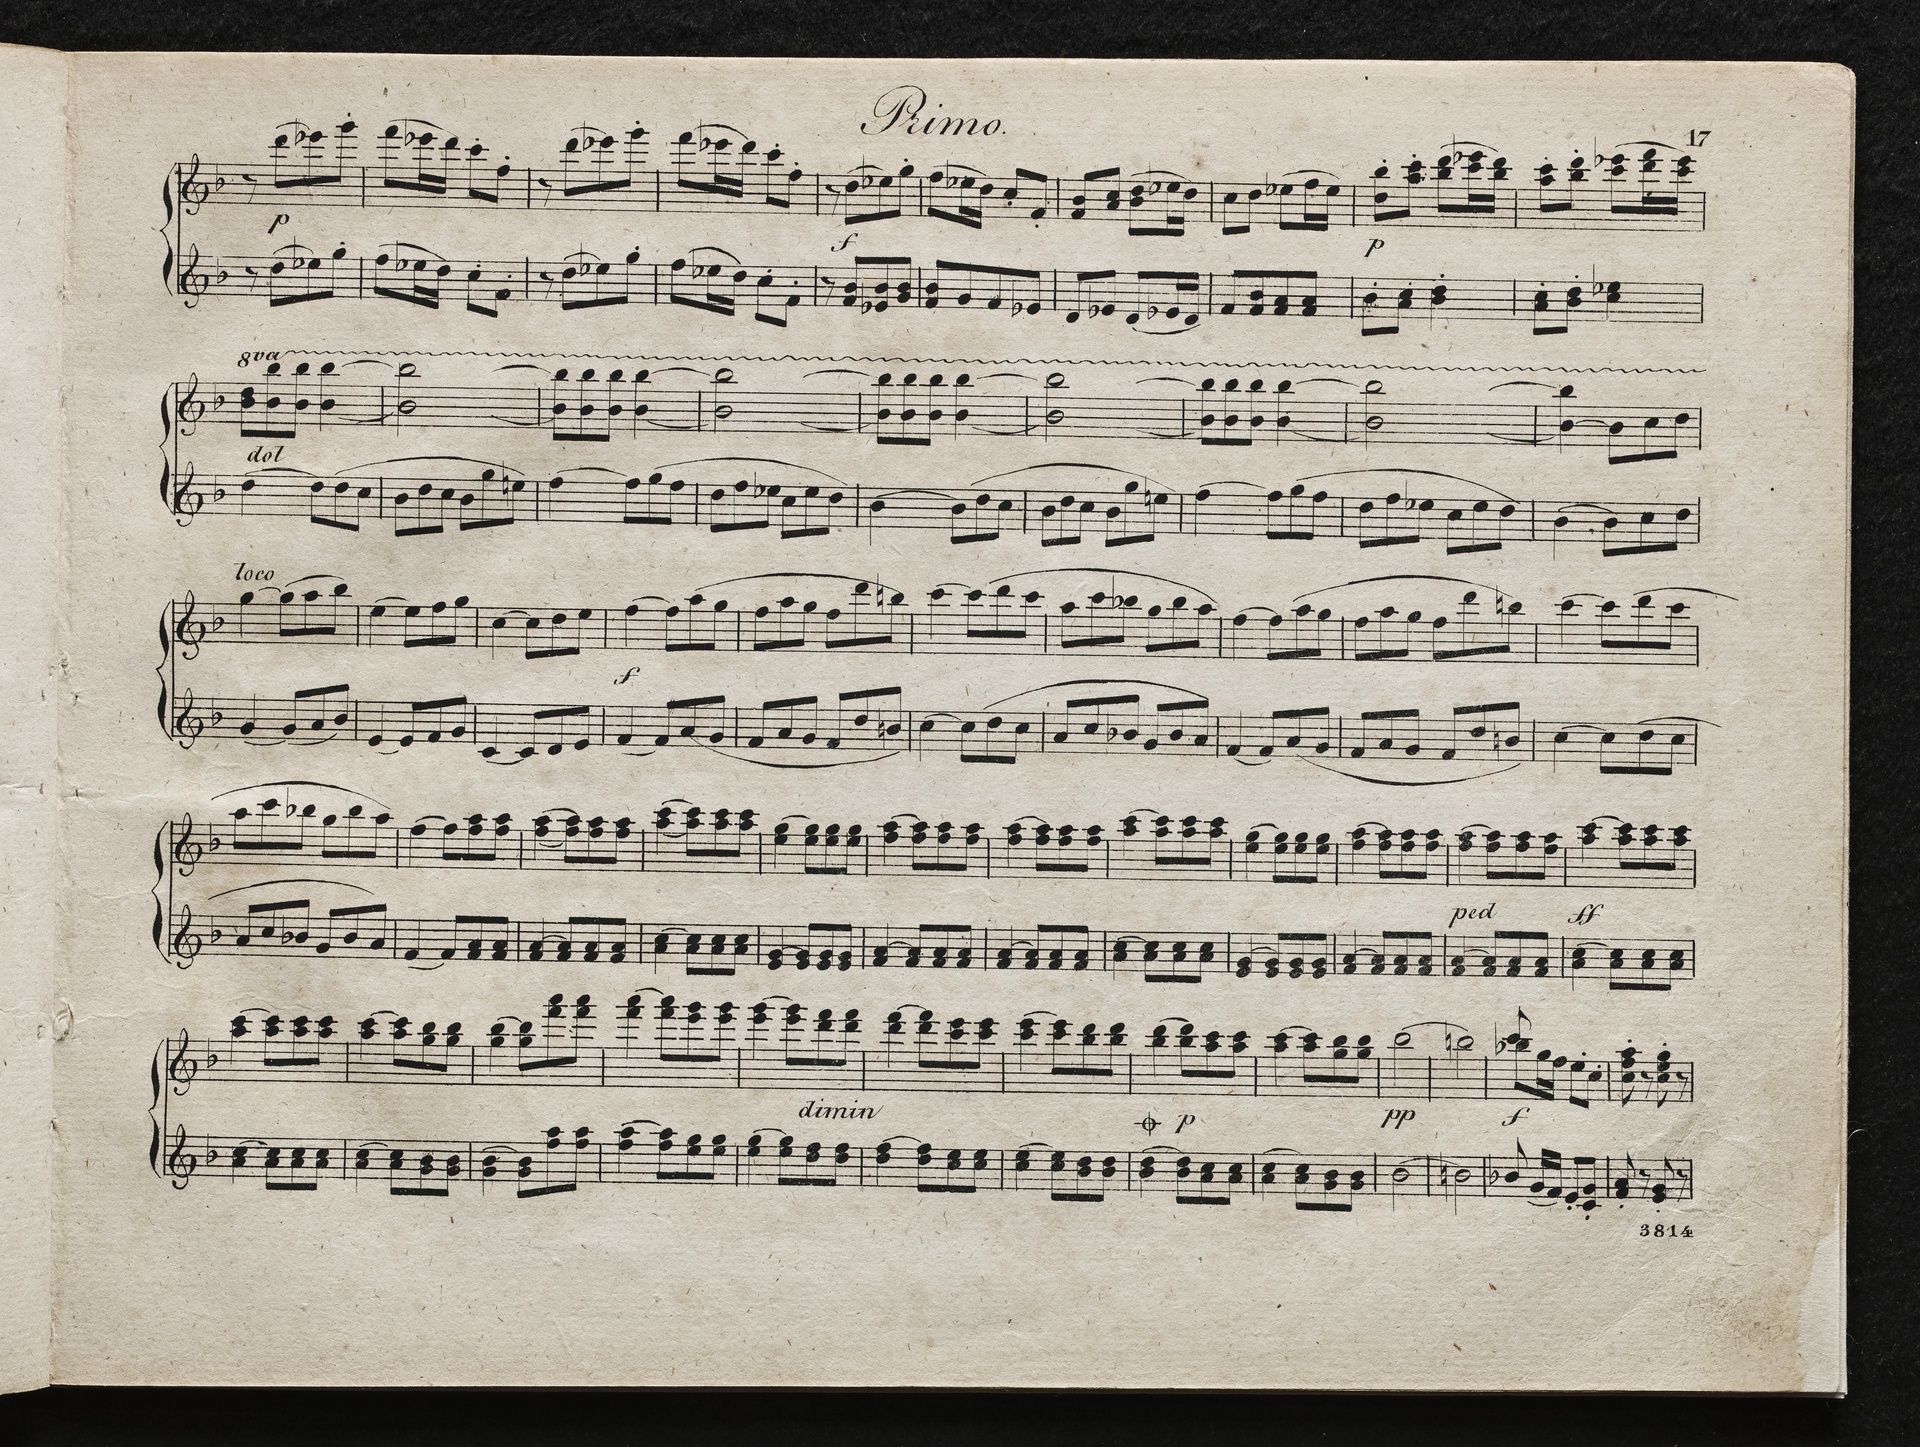 Primo.
17
p
f
p
8va
dol
loco
f
ped
ff
dimin
p
pp
f
3814